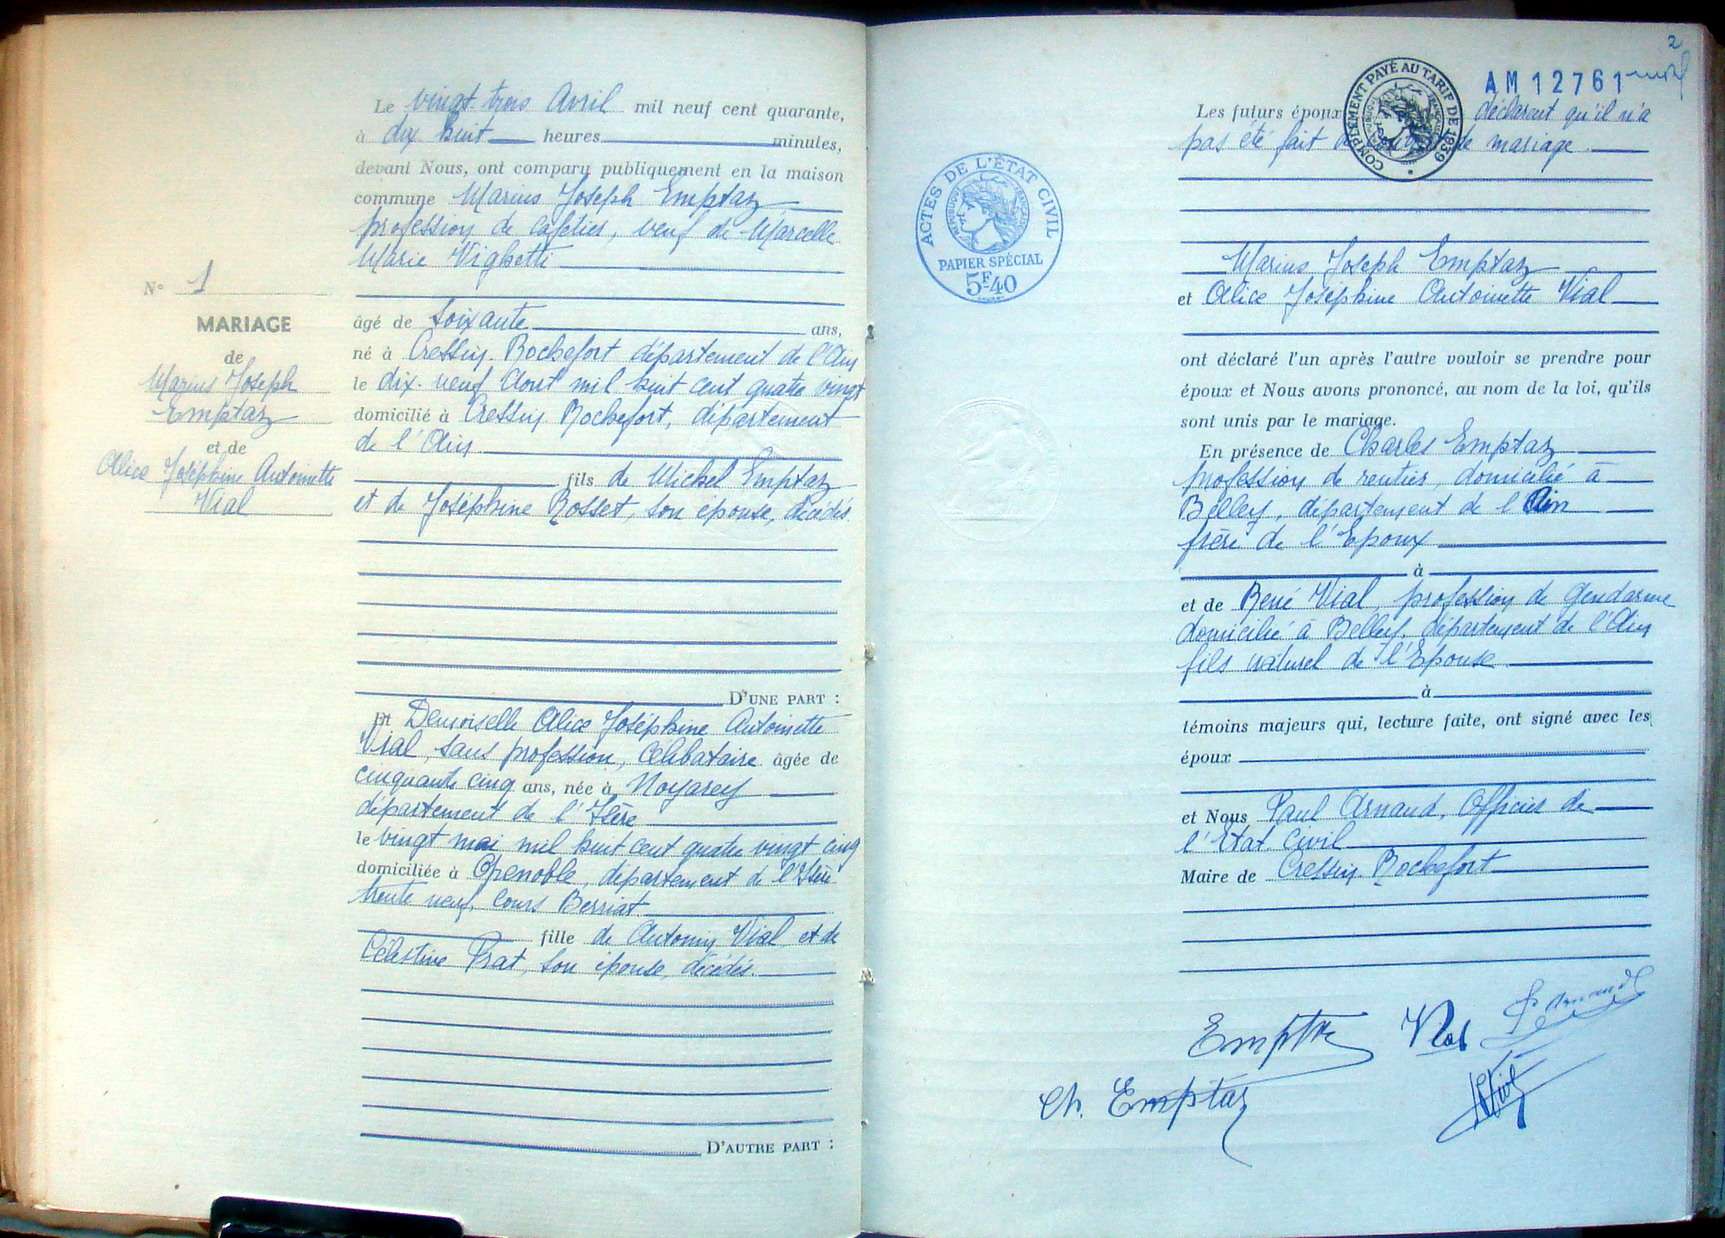 Le vingt trois Avril mil neuf cent quarante,
à dix huit heures minutes,
devant Nous, ont comparu publiquement en la maison
commune Marius Joseph Emptaz
profession de cafetier, veuf de Marcelle
Marie Vighetti
N° 1
MARIAGE
de
Marius Joseph
Emptaz
et de
Alice Joséphine Antoinette
Vial
âgé de soixante ans,
né à Cressin-Rochefort département de l'Ain
le dix-neuf Aout mil huit cent quatre vingt
domicilié à Cressin-Rochefort, département
de l'Ain
fils de Michel Emptaz
et de Joséphine Rosset, son épouse, décédés
D'UNE PART :
Et Demoiselle Alice Joséphine Antoinette
Vial, sans profession, Célibataire âgée de
cinquante cinq ans, née à Noyarey
département de l'Isère
le vingt mai mil huit cent quatre vingt cinq
domiciliée à Grenoble, département de l'Isère
trente neuf, Cours Berriat
fille de Antonin Vial et de
Célestine Prat, son épouse, décédés.
D'AUTRE PART :
2
AM12761
COMPLÉMENT PAYÉ AU TARIF DE 1939
Les futurs époux déclarent qu'il n'a
pas été fait de mariage.
ACTES DE L'ÉTAT CIVIL
RÉPUBLIQUE FRANÇAISE
PAPIER SPÉCIAL
5F40
Marius Joseph Emptaz
et Alice Joséphine Antoinette Vial
ont déclaré l'un après l'autre vouloir se prendre pour
époux et Nous avons prononcé, au nom de la loi, qu'ils
sont unis par le mariage.
En présence de Charles Emptaz
profession de rentier, domicilié à
Belley, département de l'Ain
frère de l'Epoux
à
et de René Vial, profession de Gendarme
domicilié à Belley, département de l'Ain
fils naturel de l'Epouse
à
témoins majeurs qui, lecture faite, ont signé avec les
époux
et Nous Paul Arnaud, Officier de
l'Etat Civil
Maire de Cressin-Rochefort
P. Arnaud
Emptaz Vial
Ch. Emptaz
Vial